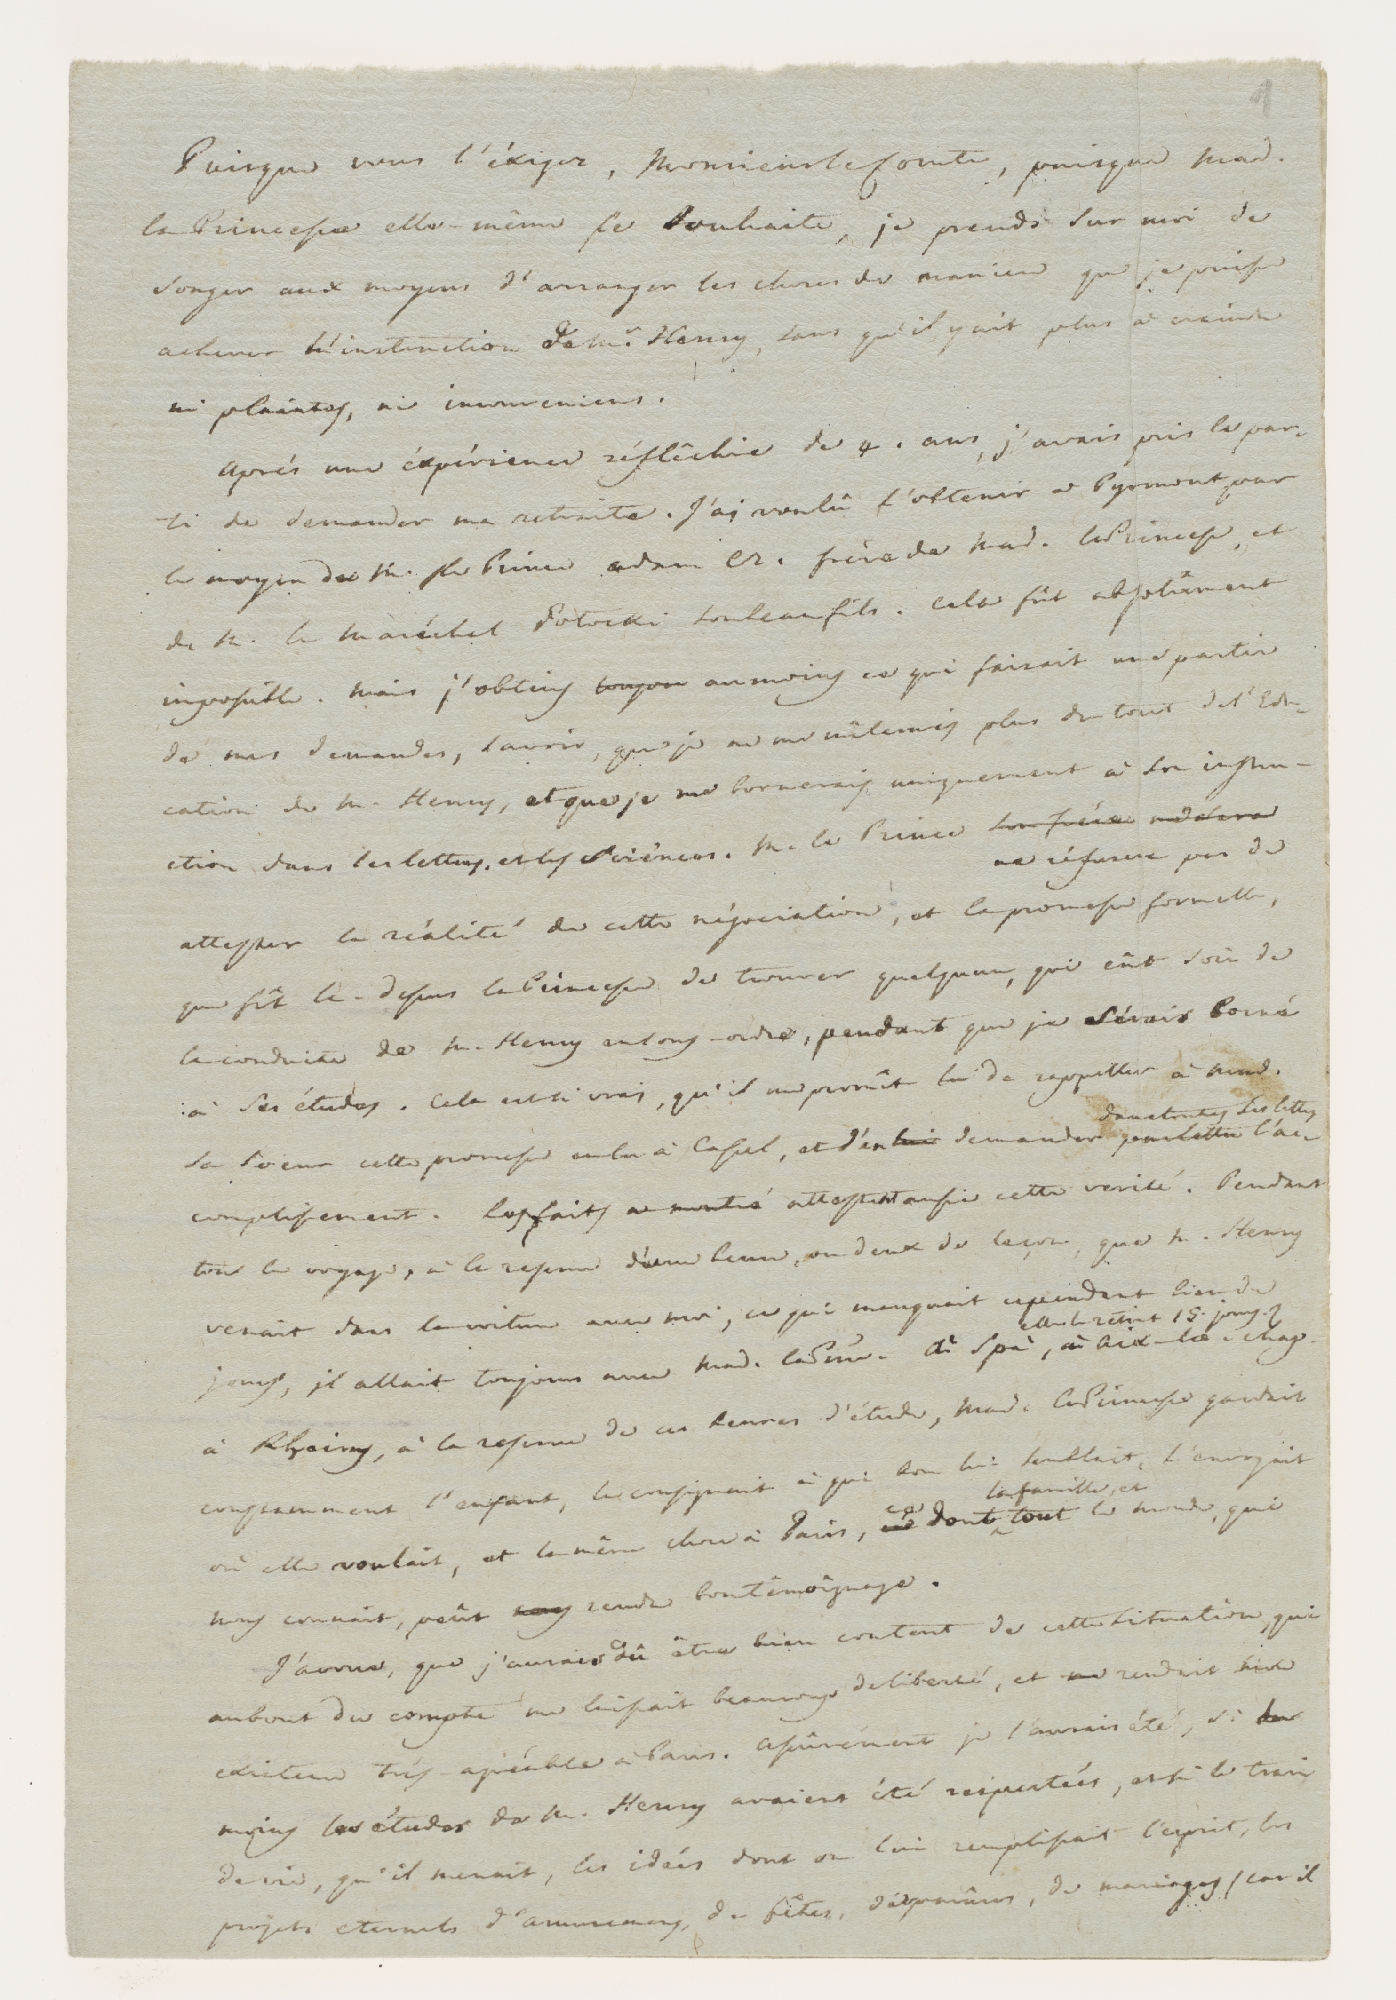 1
Puisque vous l'éxigez, Monsieur le Comte, puisque Mad.
la Princesse elle-même le Souhaite, je prends Sur moi de
Songer aux moyens d'arranger les choses de maniere que je puisse
achever l'instruction de Mr. Henry, sans qu'il y ait plus à craindre
ni plaintes, ni inconveniens.
Aprés une éxpérience réflêchie de 4. ans, j'avais pris le par-
ti de demander ma retraite. J'ai voulû l'obtenir a Pyrmont par
le moyen de M. le Prince adam Cz. frère de Mad. la Princesse, et
de M. le Maréchal Potocki son beaufils. Cela fût absolûment
impossible. Mais j'obtins toujours aumoins ce qui faisait une partie
de mes demandes, Savoir, que je ne me mêlerais plus du tout de l'Edu-
cation de M. Henry, et que je me bornerais uniquement à Son instru-
ction dans les lettres, et les Sciênces. M. le Prince son frére
ne réfusera pas de
attester la réalité de cette négociation, et la promesse formelle,
que fît là-dessus la Princesse de trouver quelqu'un, qui eût Soin de
la conduite de M. Henry en sous-ordre, pendant que je Sérais borné
à Ses études. Cela est si vrai, qu'il me promît lui de rappeller à Mad.
dans toutes Ses lettres
Sa Soeur cette promesse en la à Cassel, et d'en lui demander par lettre l'ac-
complissement. Les faits attestent aussi cette verité. Pendant
tout le voyage, à la reserve d'une heure, ou deux de leçon, que M. Henry
venait dans la voiture avec moi, ce qui manquait cependant bien de
elle le retint 15. jours
jours, il allait toujours avec Mad. la Psse. à Spà, à Aix-la-chap.
à Rheims, à la reserve de ces heures d'étude, Mad. la Princesse gardait
constamment l'enfant, le consignait à qui bon lui Semblait, l'envoyait
la famille, et
où elle voulait, et la même chose à Paris, ce dont tout le monde, qui
nous connait, peût nous rendre bon têmoîgnage.
J'avoue, que j'aurais dû être bien content de cette Situation, qui
aubout du compte me laissait beaucoup de liberté, et me rendait mon
existence trés-agréable à Paris. Assûrément je l'aurais été, si du
moins les études de M. Henry avaient été respectées, et si le train
de vie, qu'il menait, les idées dont on lui remplissait l'esprit, les
projets eternels d'amusemens, de fêtes, de parûres, de mariages (car il